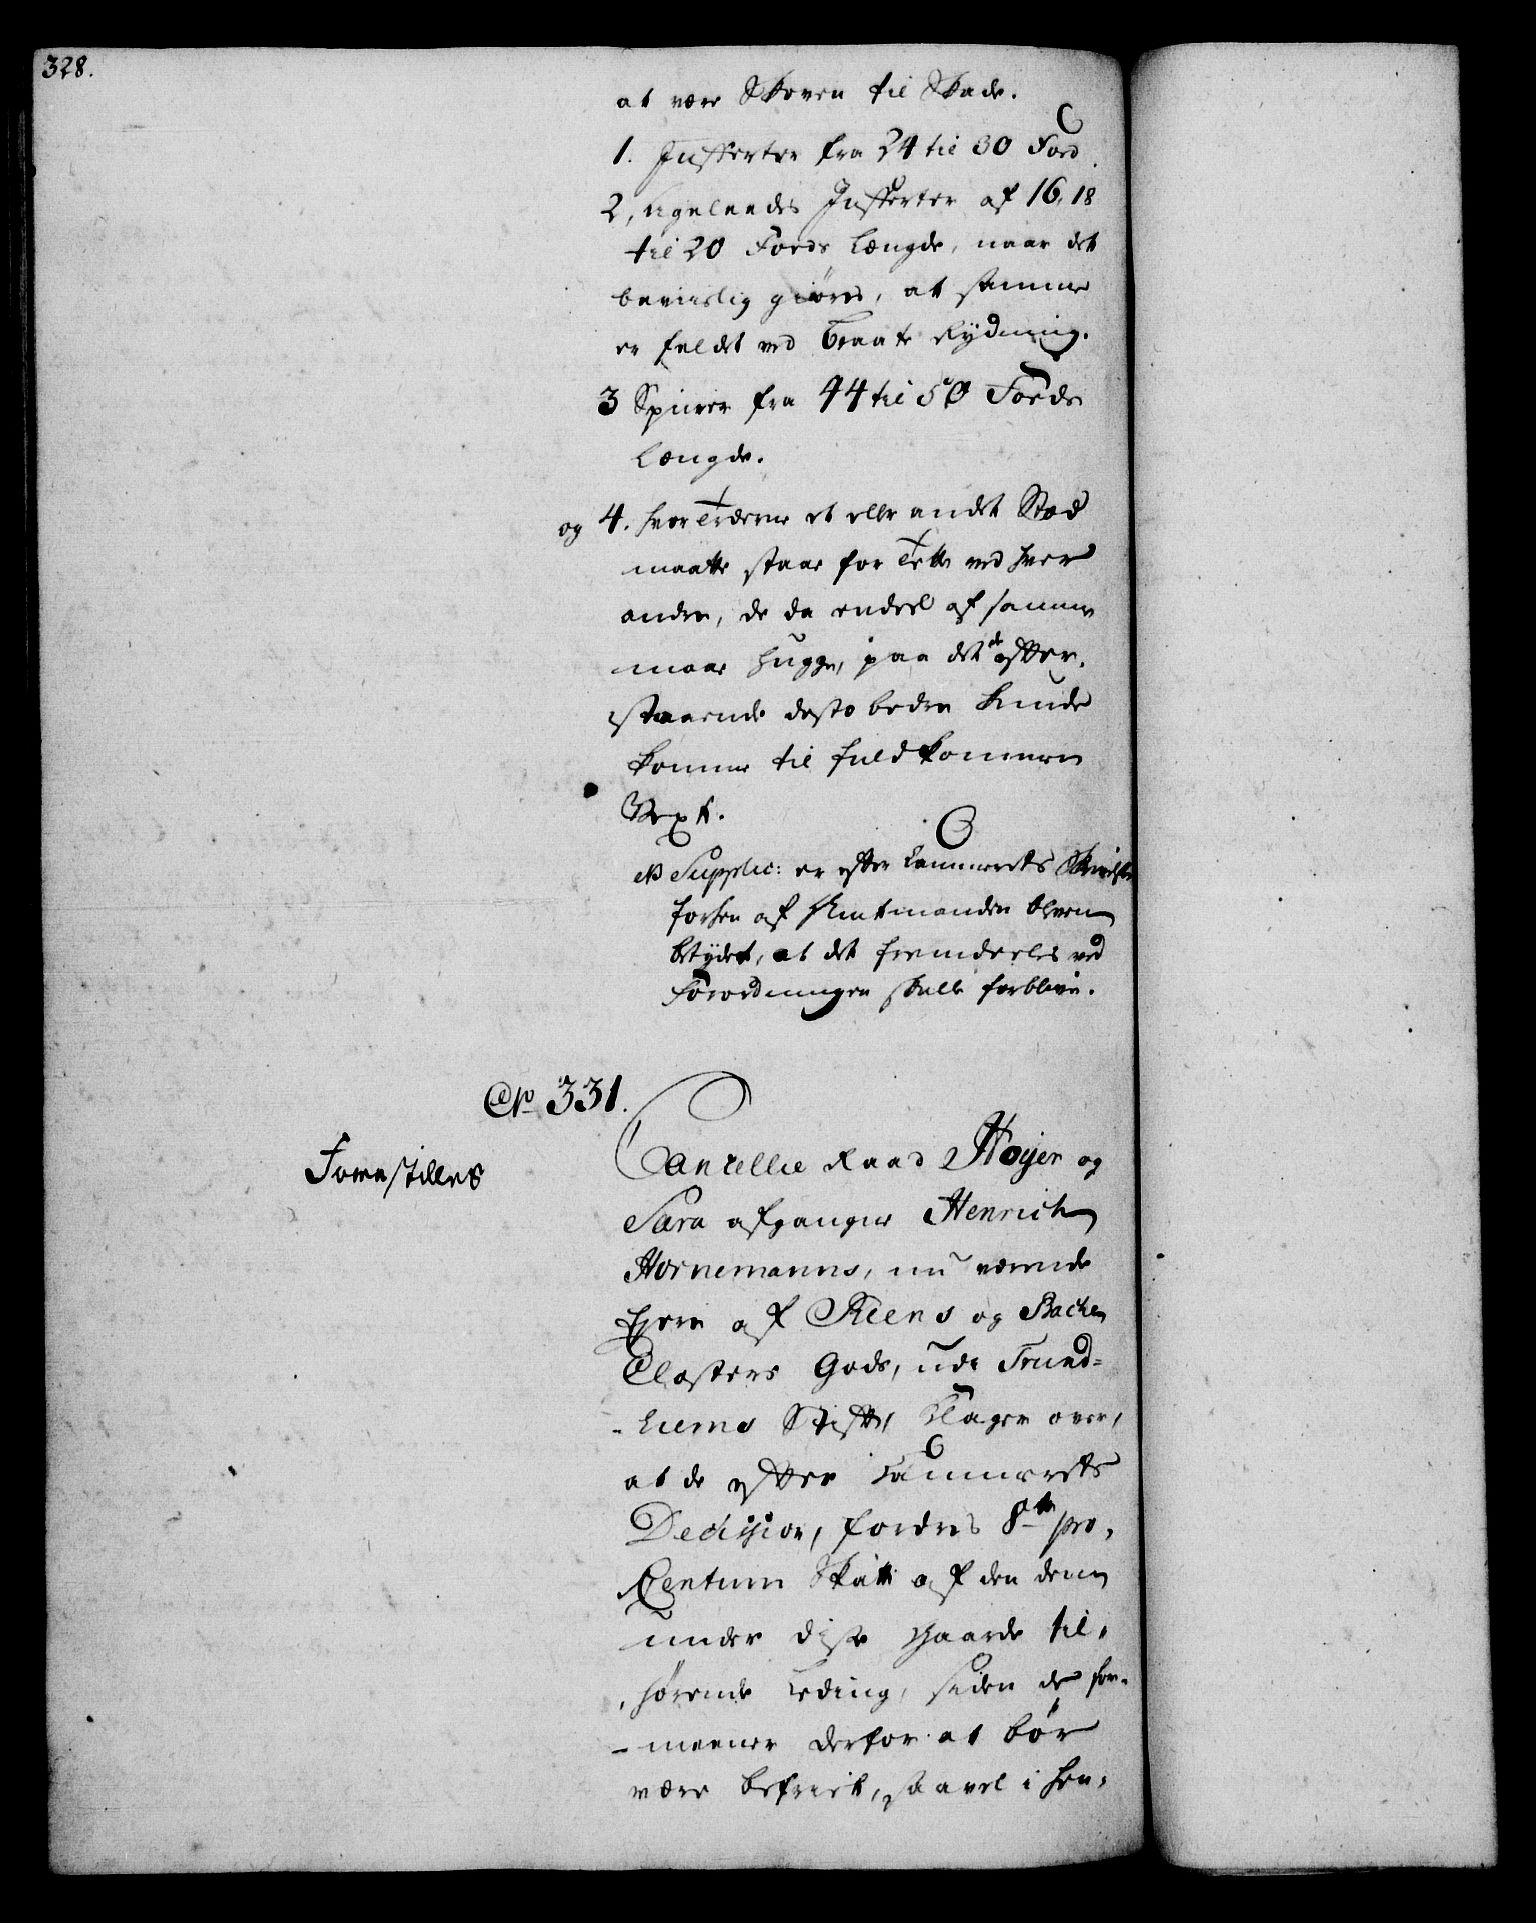 328.
at være Skoven til Skade.
1. Jufferter fra 24 til 30 Fod.
2, ligeleedes Jufferter af 16, 18
til 20 Fods Længde, naar det
beviislig giøres, at samme
er feldet ved Braate Rydning.
3 Spiirer fra 44 til 50 Fods
Længde.
og 4. hvor Træerne et eller andet Stæd
maatte staae for Tette ved hver
andre, de da endeel af samme
maae hugge, paa det de efter-
staaende desto bedre kunde
komme til fuldkommen
Vext.
NB Supplic: er efter Cammerets Skrivelse
forhen af Amtmanden bleven
betydet, at det fremdeeles ved
Forordningen skulle forblive.
No 331.
Forestilles
Cancellie Raad Høyer og
Sara afgangne Henrich
Hornemanns, nu værende
Ejere af Reens og Backe
Closters Gods, udi Trund-
-hiems Stift, klager over,
at de efter Cammerets
Decision, fordres 8te pro
Centum Skatt af den dem
under disse Gaarde til-
-hørende Leding, siden de for-
-meener derfor at bør
være befriet, saavel i hen-